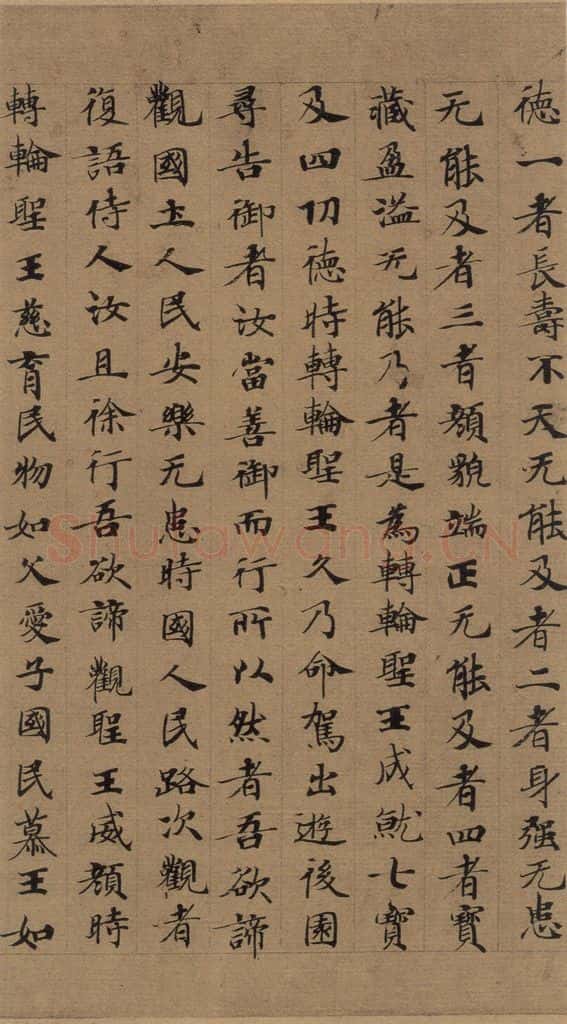 德一者長壽不夭无能及者二者身强无患
无能及者三者顏貌端正无能及者四者寶
藏盈溢无能乃者是為轉輪聖王成就七寶
及四功德時轉輪聖王久乃命駕出遊後園
尋告御者汝當善御而行所以然者吾欲諦
觀國土人民安樂无患時國人民路次觀者
復語侍人汝且徐行吾欲諦觀聖王威顏時
轉輪聖王慈育民物如父愛子國民慕王如